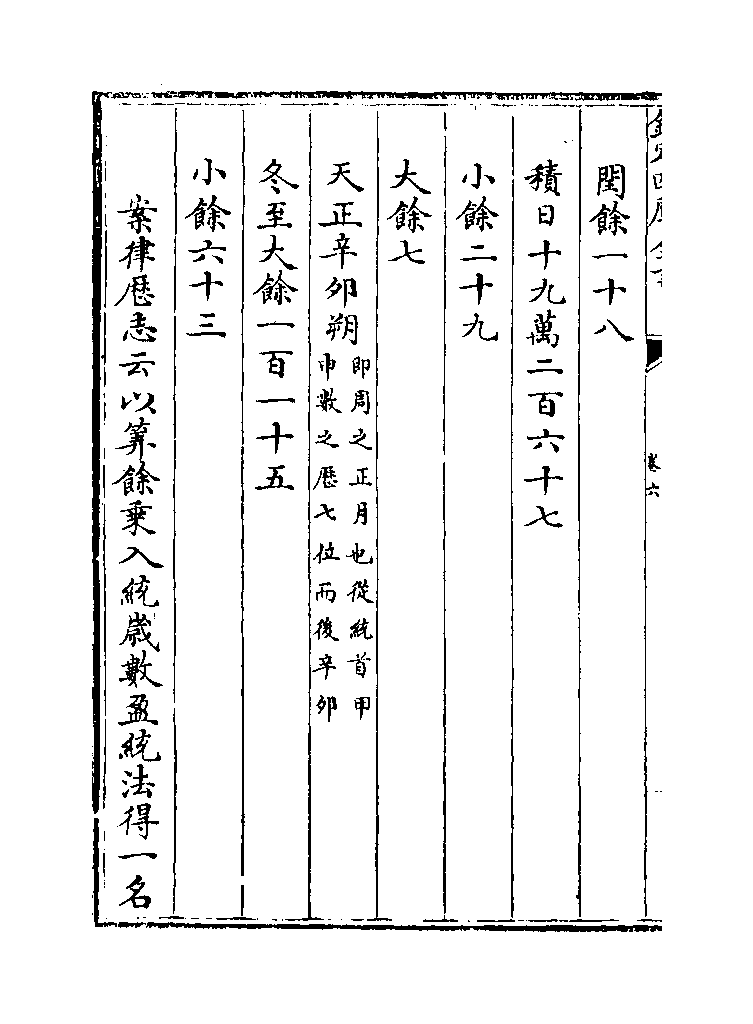 欽定四庫全書
卷六
閏餘一十八
積日十九萬二百六十七
小餘二十九
大餘七
天正辛卯朔即周之正月也從統首甲
申數之歴七位而後辛卯
冬至大餘一百一十五
小餘六十三
案律歴志云以算餘乗入統嵗數盈統法得一名